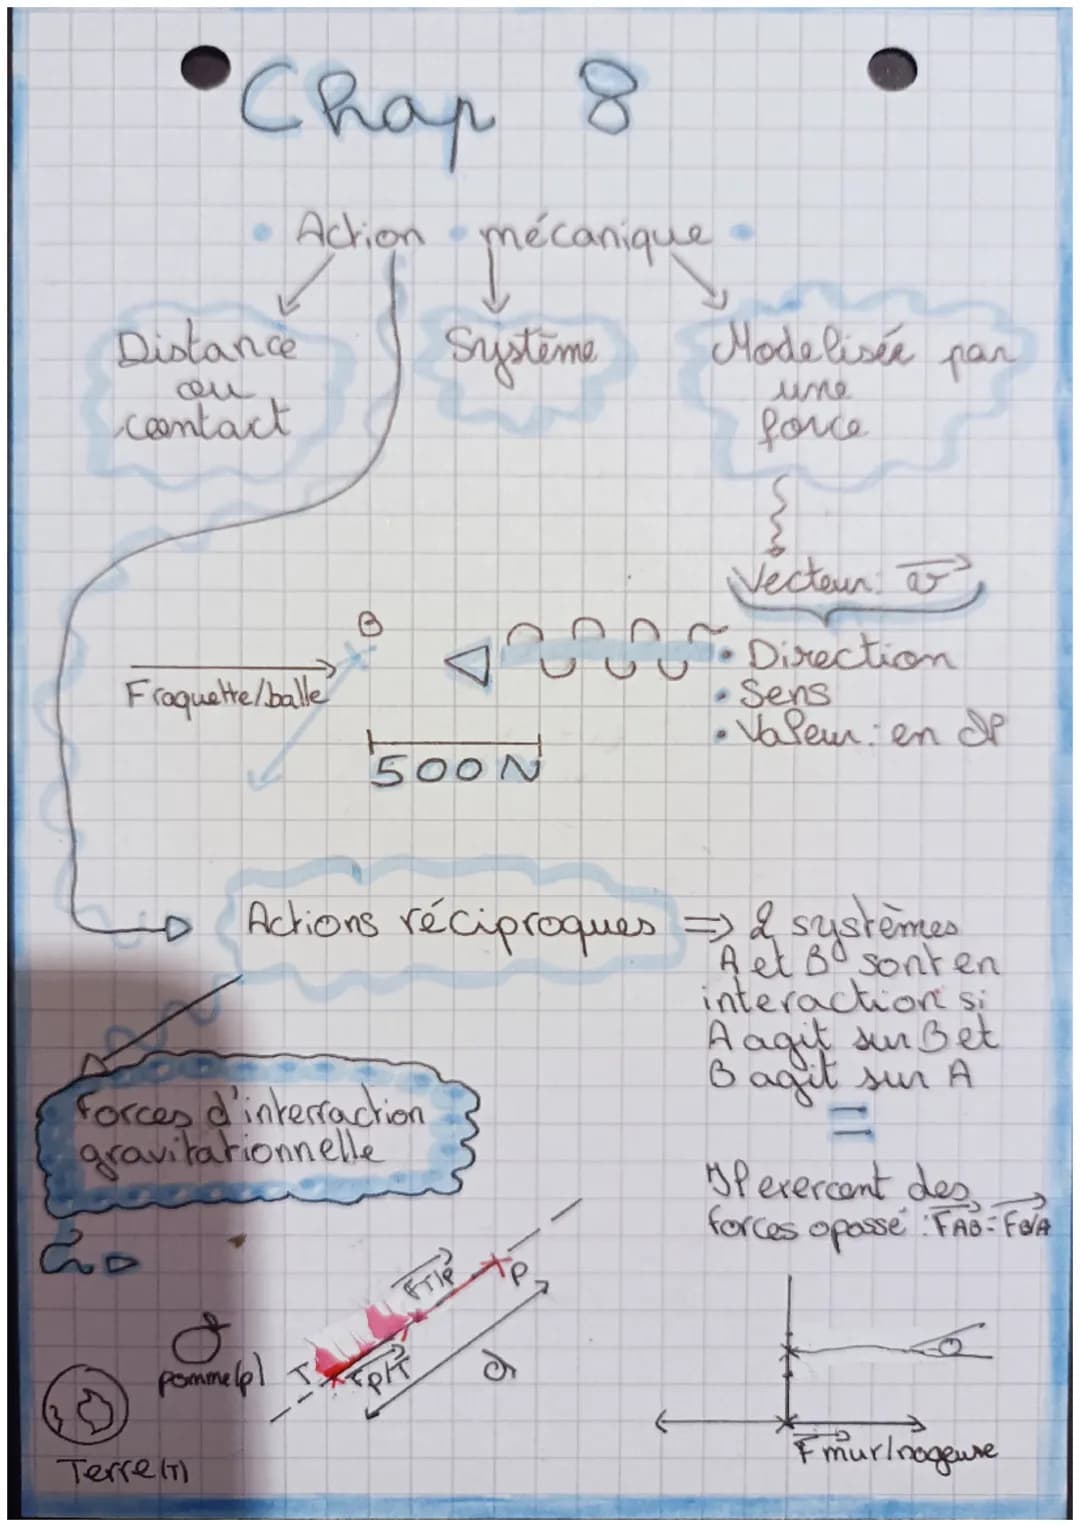 Chap 8
• Action • mécanique •
Distance
ou
contact
Système
Modelisée par
une
force
Vecteur: v
B
Fraquette/balle
• Direction
• Sens
• Valeur: en N
500 N
Actions réciproques => 2 systèmes
A et B sont en
interaction si
A agit sur B et
B agit sur A
=
Forces d'interraction
gravitationnelle
exercent des
forces opossé : FAB = FB/A
FT/P
P
pomme(p)
T
FP/T
d
Terre(T)
F mur/nageuse